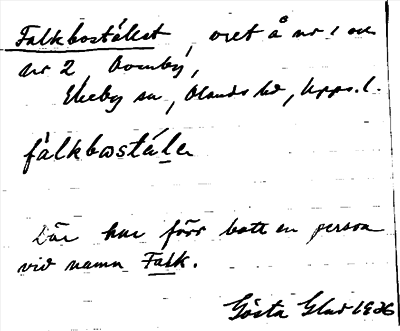 Falkbostället, oret å nr 1 och
nr 2 Bomby,
Ekeby sn, Olands hd, Upps. l.
falkbostäle
Där har förr bott en person
vid namn Falk.
Gösta Glad 1936